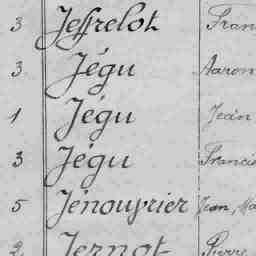 3 Jeffrelot Fran
3 Jégu Aaron
1 Jégu Jean
3 Jégu Francis
5 Jénouvrier Jean, Ma
2 Jernot Pierre